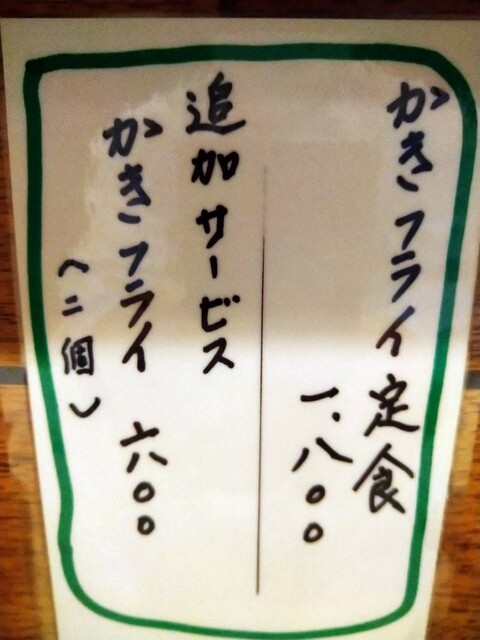 かきフライ定食
一、八〇〇
追加サービス
かきフライ 六〇〇
(二個)